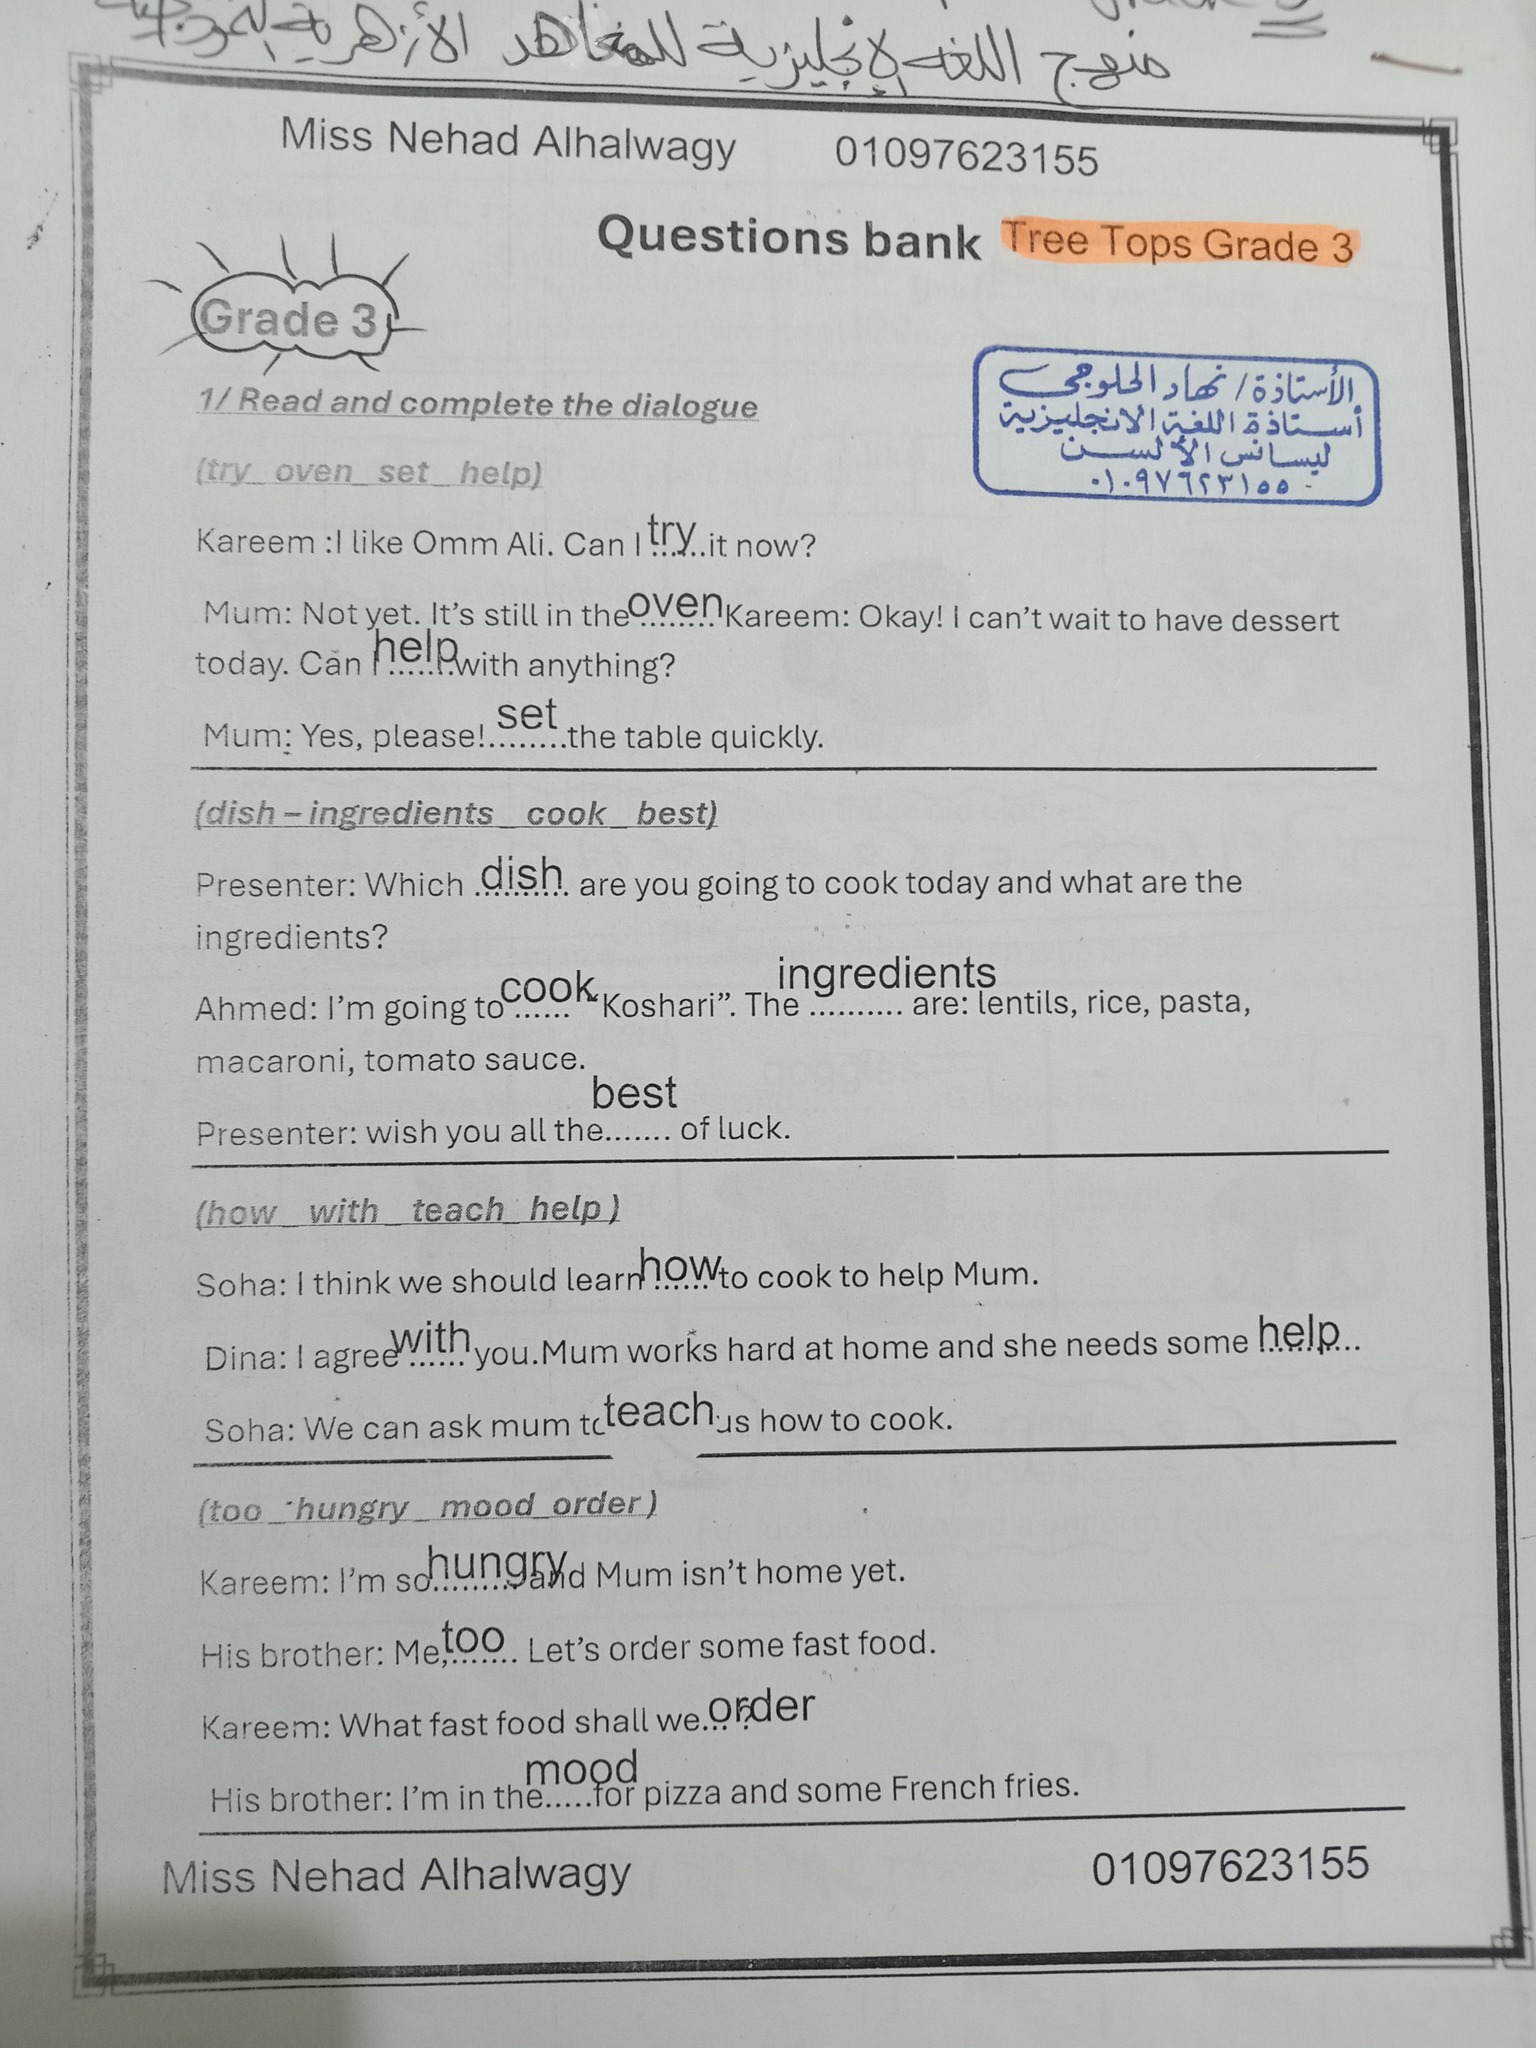 منهج اللغه الإنجليزية للمعاهد الأزهرية
Miss Nehad Alhalwagy 01097623155
Questions bank Tree Tops Grade 3
Grade 3
الأستاذة/ نهاد الحلوجى
أستاذة اللغة الانجليزية
ليسانس الألسن
٠١٠٩٧٦٢٣١٥٥
1/ Read and complete the dialogue
(try_ oven_ set_ help)
Kareem :I like Omm Ali. Can I try it now?
Mum: Not yet. It's still in the oven Kareem: Okay! I can't wait to have dessert
today. Can I help with anything?
Mum: Yes, please! set the table quickly.
(dish – ingredients_ cook_ best)
Presenter: Which dish are you going to cook today and what are the
ingredients?
Ahmed: I'm going to cook "Koshari". The ingredients are: lentils, rice, pasta,
macaroni, tomato sauce.
Presenter: wish you all the best of luck.
(how_ with_ teach_ help )
Soha: I think we should learn how to cook to help Mum.
Dina: I agree with you.Mum works hard at home and she needs some help...
Soha: We can ask mum to teach us how to cook.
(too_ hungry_ mood_ order )
Kareem: I'm so hungry and Mum isn't home yet.
His brother: Me, too Let's order some fast food.
Kareem: What fast food shall we order ?
His brother: I'm in the mood for pizza and some French fries.
Miss Nehad Alhalwagy 01097623155